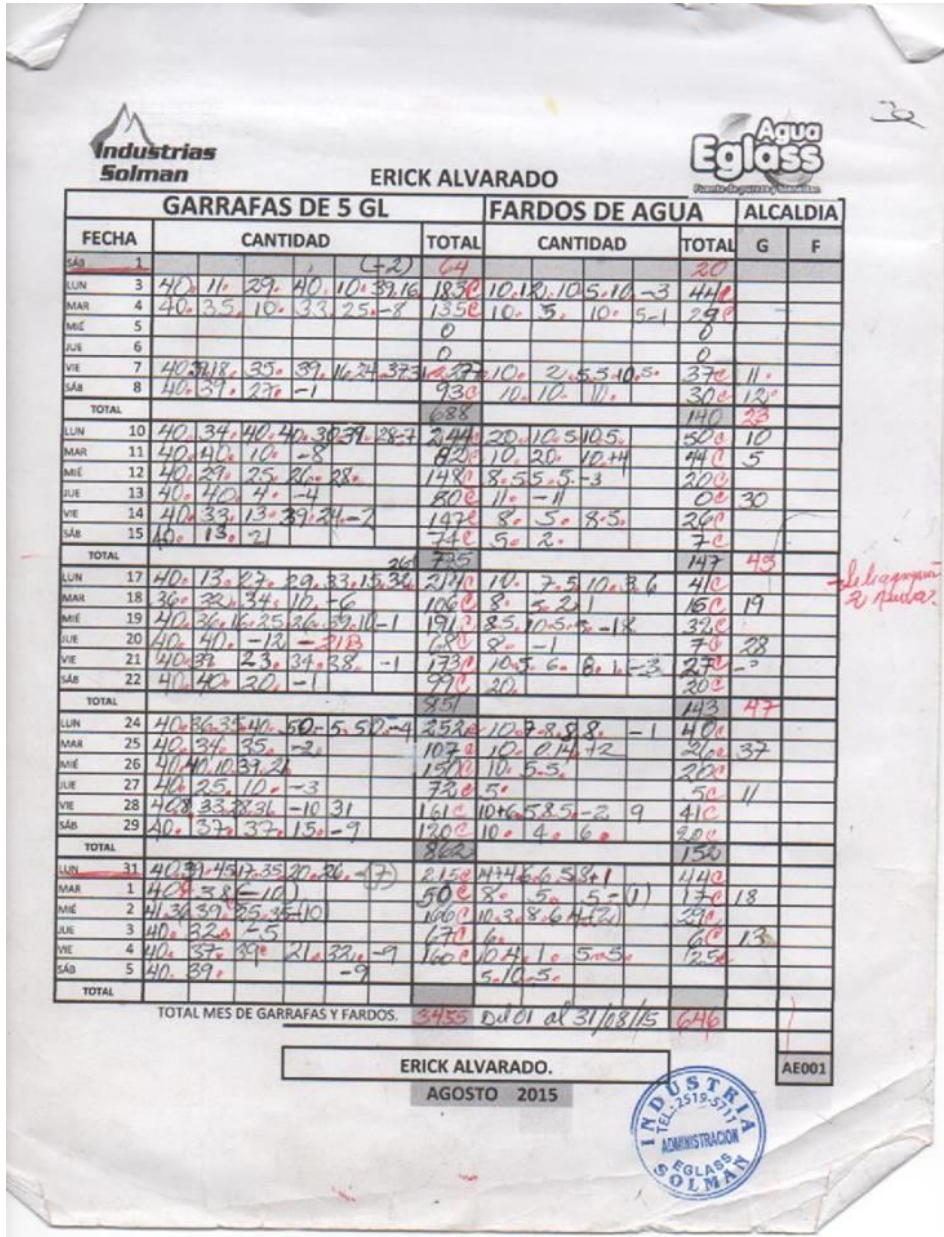 Industrias
Solman
Agua
Eglass
ERICK ALVARADO
GARRAFAS DE 5 GL FARDOS DE AGUA ALCALDIA
FECHA CANTIDAD TOTAL CANTIDAD TOTAL G F
SÁB 1 (-2) 64 20
LUN 3 40. 11. 29. 40. 10. 39. 16 183C 10. 12. 10 5. 10. -3 44C
MAR 4 40. 35. 10. 33. 25. -8 135C 10. 5. 10. 5-1 29C
MIÉ 5 0 0
JUE 6 0 0
VIE 7 35. 39. 16. 24 37C 11.
SÁB 8 40. 39. 27. -1 93C 10. 10. 10. 30C 12.
TOTAL 688 140 23
LUN 10 40. 34. 40. 40. 30 39. 28-7 244C 20. 10. 5 10 5. 50C 10
MAR 11 40. 40. 10. -8 82C 10. 20. 10. +4 44C 5
MIÉ 12 40. 29. 25. 26. 28. 148C 8. 5 5. 5. -3 20C
JUE 13 40. 40. 4. -4 80C 11. -11 0C 30
VIE 14 40. 33. 13. 39. 24. -2 147C 8. 5. 8. 5. 26C
SÁB 15 40. 13. 21 74C 5. 2. 7C
TOTAL 775 147 45
LUN 17 40. 13. 27. 29. 33. 15. 214C 10. 7. 5 10. 3 6 41C
MAR 18 36. 32. 34. 10. -6 106C 8. 5. 2. 1 16C 19
MIÉ 19 40. 36. 16. 25. 26. 39. 10-1 191C 8 5. 10. 5. -18
JUE 20 40. 40. -12 -21B 68C 8. -1 7C 28
VIE 21 40. 39. 23. 34. 38. -1 173C 10. 5. 6. 8. 1. -3 27C
SÁB 22 40. 40. 20. -1 99C 20. 20C
TOTAL 851 143 47
LUN 24 40. 36. 35. 40. 50. -5. -4 252C 10. 7. 8. 8. 8. -1 40C
MAR 25 40. 34. 35. -2. 107C 10. 0. 14. +2 26C 37
MIÉ 26 40. 40. 10. 39. 21 150C 10. 5. 5. 20C
JUE 27 40. 25. 10. -3 72C 5. 5C 11
VIE 28 40. 8. 33. 28 31 -10 31 161C 10+6. 5 8 5. -2 9 41C
SÁB 29 40. 37. 37. 15. -9 120C 10. 4. 6. 20C
TOTAL 862 152
LUN 31 40. 39. 45 17. 35 20. 26. -(7) 215C 14+4. 6. 6. 5 8+1 44C
MAR 1 40. 38 (-10) 50C 8. 5. 5-(1) 17C 18
MIÉ 2 41 36 39. 25. 35-(10) 166C 10. 3. 8. 6. 29C
JUE 3 40. 32. -5 67C 6. 6C 13
VIE 4 40. 37. 39. 21. 32. -9 160C 10. 4. 1. 5. 5. 25C
SÁB 5 40. 39. -9 5. 10. 5.
TOTAL
TOTAL MES DE GARRAFAS Y FARDOS. 3455 Del 01 al 31/08/15 646
ERICK ALVARADO. AE001
AGOSTO 2015
INDUSTRIA
TEL: 2519-5711
ADMINISTRACION
EGLASS
SOLMAN